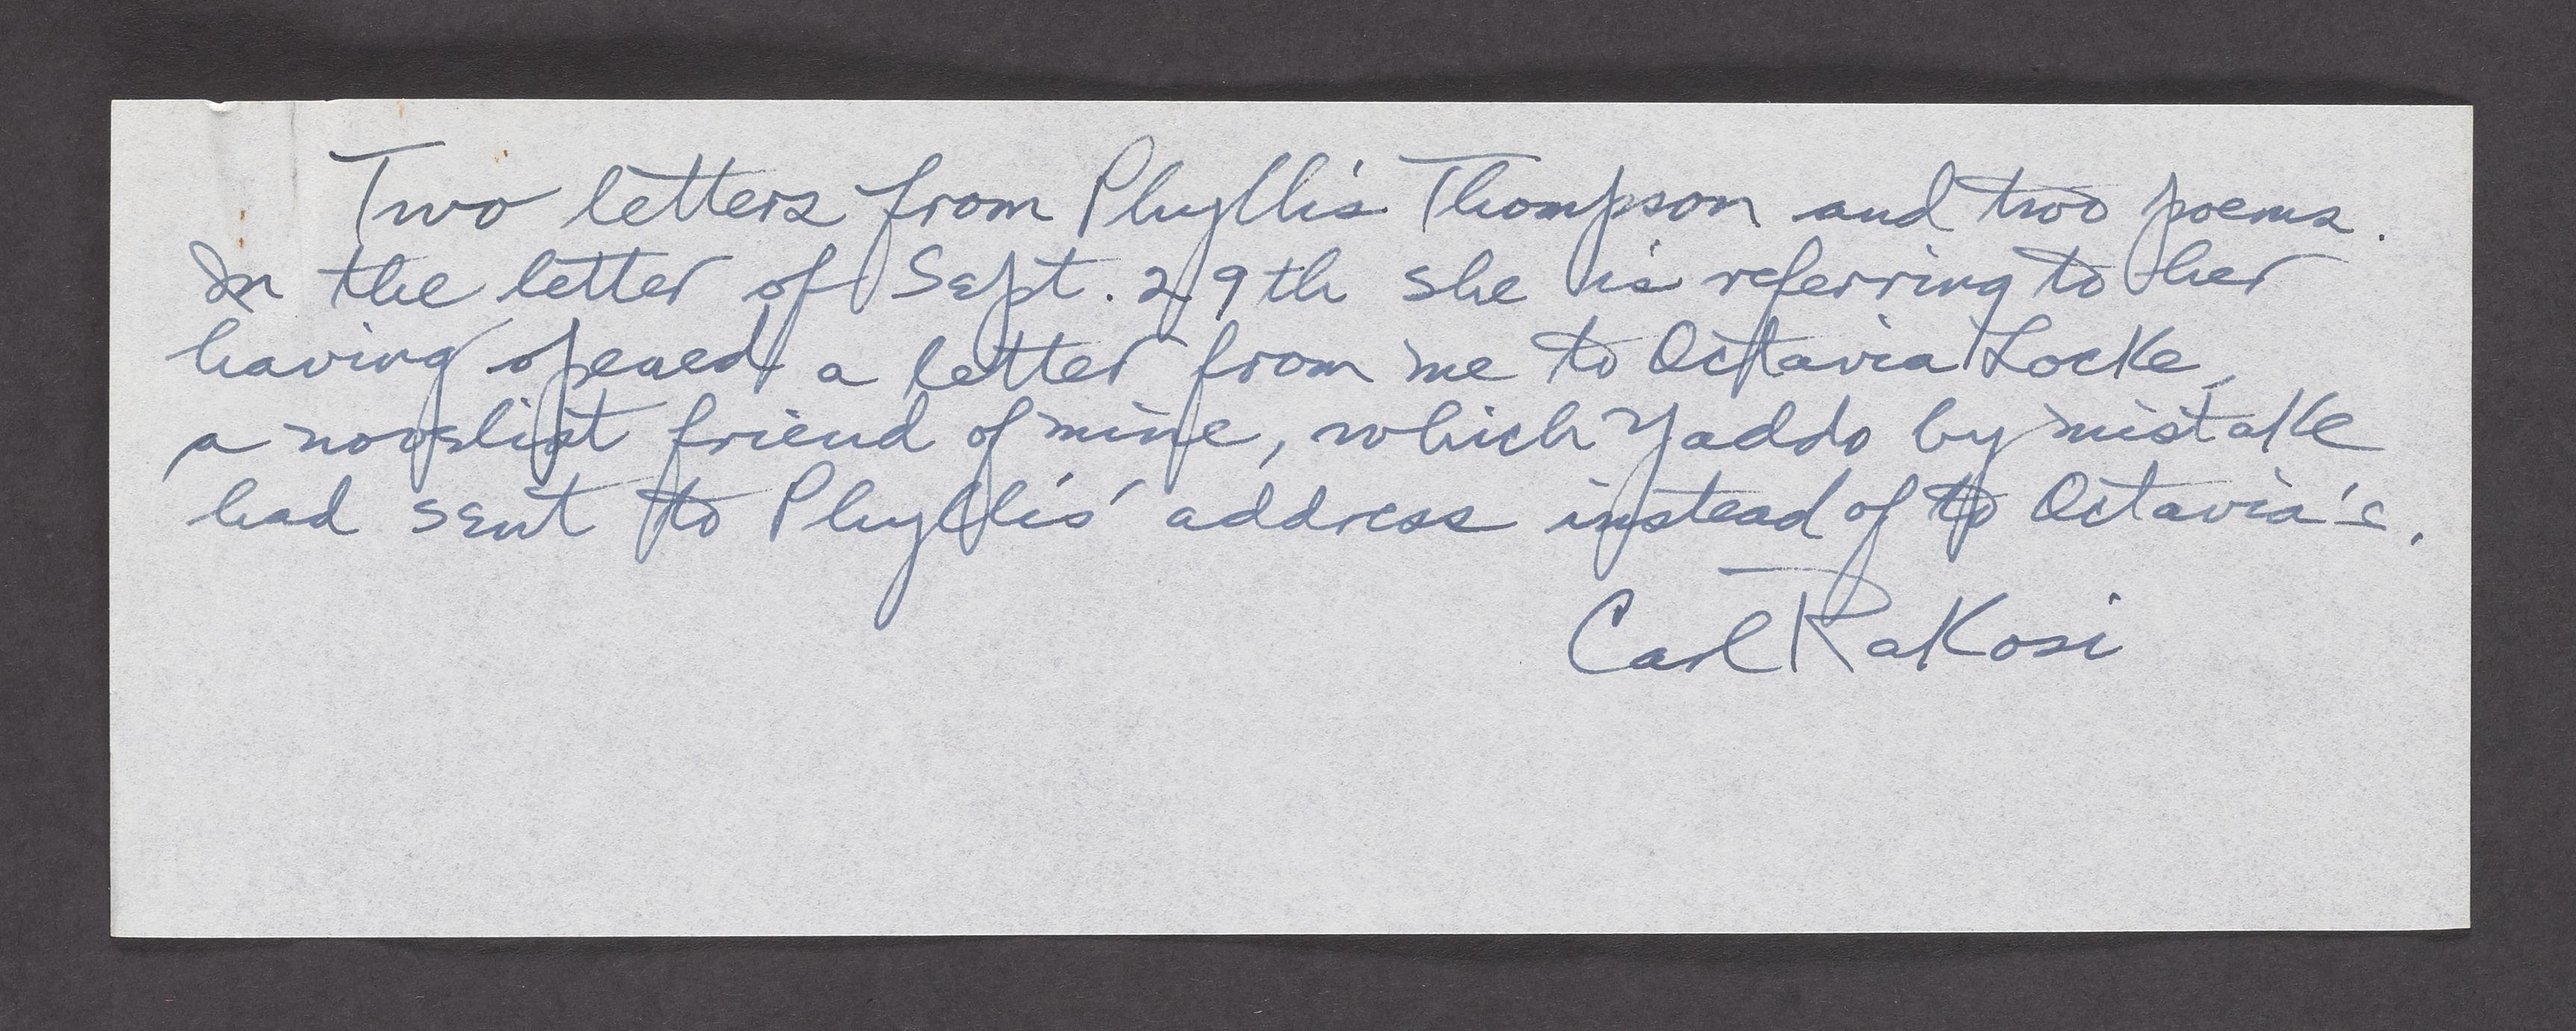 Two letters from Phyllis Thompson and two poems.
In the letter of Sept. 29th she is referring to her
having opened a letter from me to Octavia Locke,
a novelist friend of mine, which Yaddo by mistake
had sent to Phyllis' address instead of to Octavia's.
Carl Rakosi